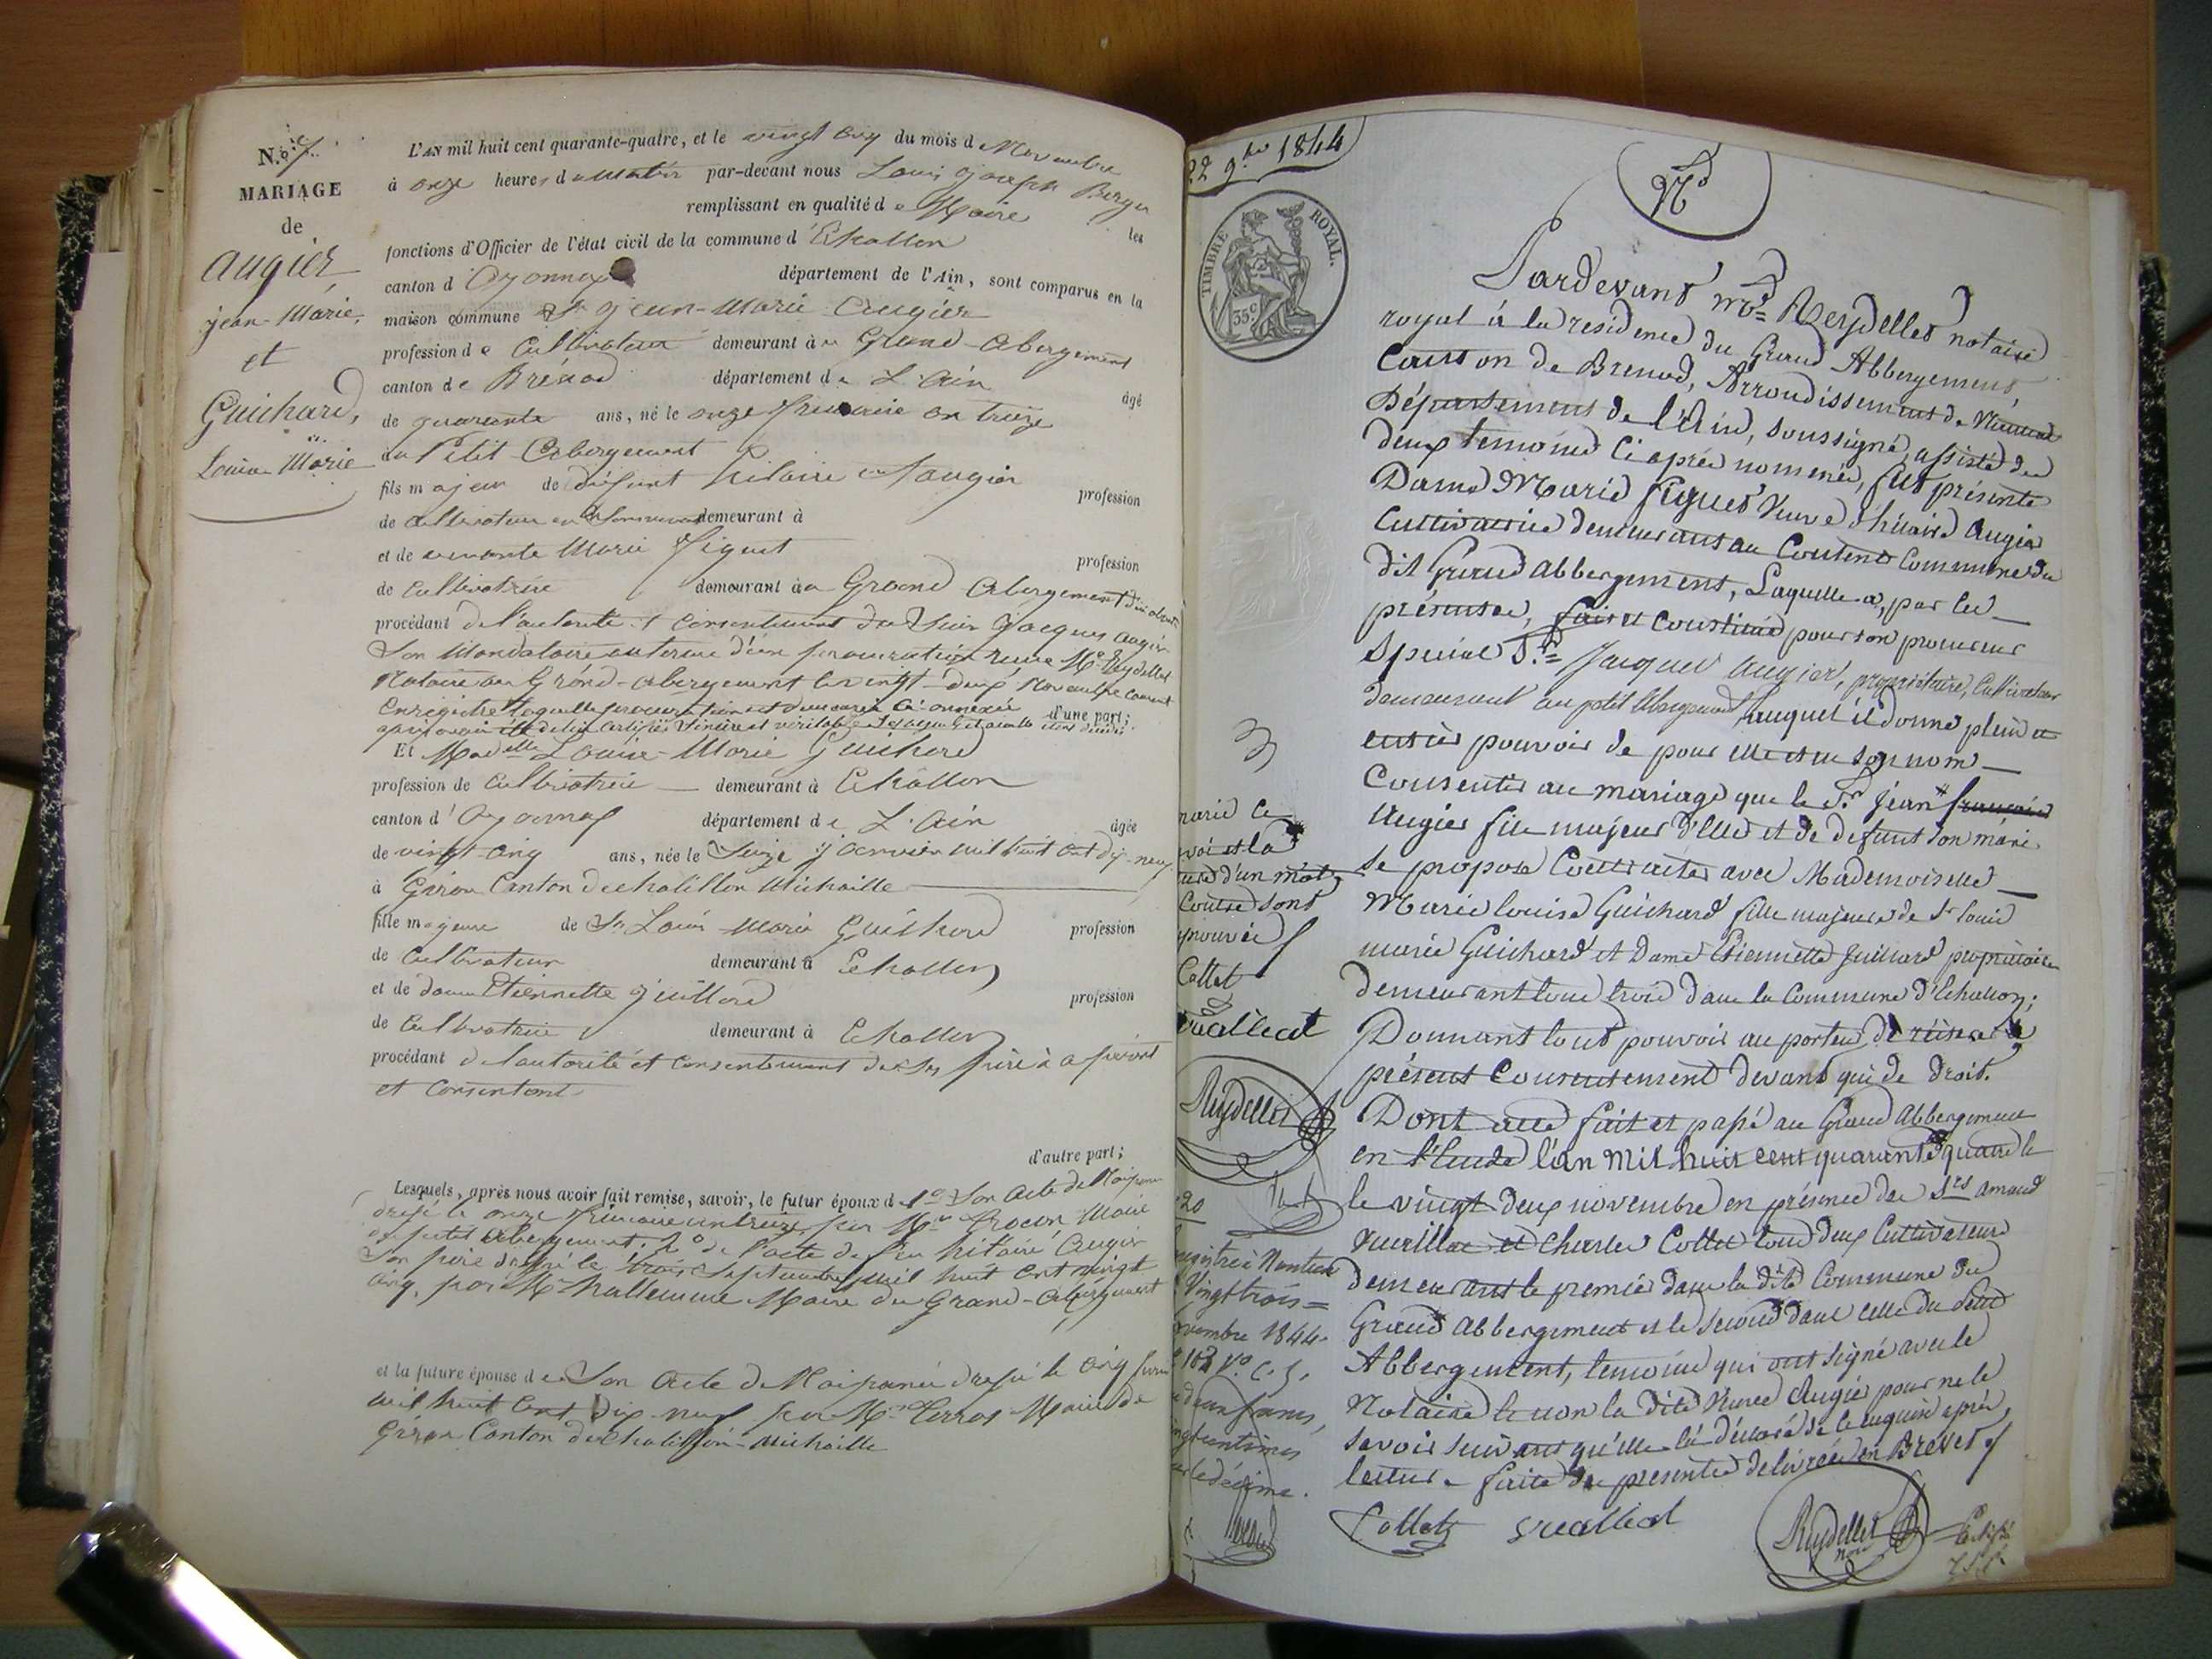 N.º 7.
MARIAGE
de
Augier
jean-Marie,
et
Guichard,
Louise Marie
L'AN mil huit cent quarante-quatre, et le vingt cinq du mois de Novembre
à onze heures du matin par-devant nous Louis Joseph Berger
remplissant en qualité de Maire les
fonctions d'Officier de l'état civil de la commune d'Echallon
canton d'Oyonnax département de l'Ain, sont comparus en la
maison commune Sr Jean-Marie Augier
profession de Cultivateur demeurant au Grand-Abergement
canton de Brénod département de L'Ain âgé
de quarante ans, né le onze frimaire an treize
au Petit Abergement
fils majeur de défunt hilaire Augier profession
de Cultivateur demeurant à
et de vivante Marie Figuet profession
de Cultivatrice demeurant au Grand Abergement
procédant de l'autorité et consentement du Sieur Jacques Augier
son Mandataire au terme d'une procuration reçue Me Reydellet
Notaire au Grand-Abergement le vingt-deux Novembre courant
Enregistrée laquelle procuration est demeurée ci-annexée
d'une part;
Et Madelle Louise-Marie Guichard
profession de Cultivatrice demeurant à Echallon
canton d'Oyonnax département de L'Ain âgée
de vingt-cinq ans, née le Seize Janvier mil huit cent dix-neuf
à Giron Canton de chatillon Michaille
fille majeure de Sr Louis Marie Guichard profession
de Cultivateur demeurant à Echallon
et de dame Etiennette Juillard profession
de Cultivatrice demeurant à Echallon
procédant de l'autorité et consentement de ses père à ce présent
et consentant
d'autre part;
Lesquels, après nous avoir fait remise, savoir, le futur époux de 1º Son Acte de Naissance
dressé le onze frimaire an treize par Mr Maire
du petit Abergement. 2º de l'acte de feu hilaire Augier
son père dressé le trois Septembre mil huit cent vingt
cinq, par Mr Maire du Grand-Abergement
et la future épouse de Son Acte de Naissance dressé le
mil huit Cent Dix-neuf par Mr Maire de
Giron Canton de Chatillon-Michaille
22 9bre 1844
TIMBRE ROYAL.
35c
Pardevant Me Reydellet notaire
royal à la residence du Grand Abbergement,
Canton de Brenod, Arrondissement de Nantua
Département de l'Ain, soussigné, assisté de
deux temoins ci après nommés, fut présente
Dame Marie Figuet Veuve d'hilaire Augier
Cultivatrice demeurant au Commune du
dit Grand abbergement, Laquelle a, par les
présentes, fait et constitué pour son procureur
Spécial Sr Jacques Augier, propriétaire, Cultivateur
demeurant au petit Abergement, auquel il donne plein et
entier pouvoir de pour elle et en son nom
Consentir au mariage que le Sr jean françois
Augier fils majeur d'Elle et de defunt son mari
se propose Contracter avec Mademoiselle
Marie louise Guichard fille majeure de Sr louis
marie Guichard et Dame Etiennette Juillard propriétaires
demeurant tous trois dans la Commune d'Echallon;
Donnant tout pouvoir au porteur de réiterer le
présent Consentement devant qui de droit.
Dont acte fait et passé au Grand Abbergement
en l'Etude l'an Mil huit cent quarante quatre le
le vingt deux novembre en présence de Srs amand
Vuaillat et Charles Collet tous deux Cultivateurs
demeurant le premier dans la dite Commune du
Grand Abbergement et le second dans celle du petit
Abbergement, temoins qui ont signé avec le
Notaire et non la dite Veuve Augier pour ne le
savoir suivant qu'elle l'a déclaré de ce enquise après
lecture faite du presente delivrée en Brevet
Collet Vuaillat Reydellet
not
marie ce
d'un mot
Contre sont
Collet
Vuaillat
Reydellet
20
Nantua
Vingt trois
Novembre 1844.
Vo C. 5.
un franc,
centimes
le décime.